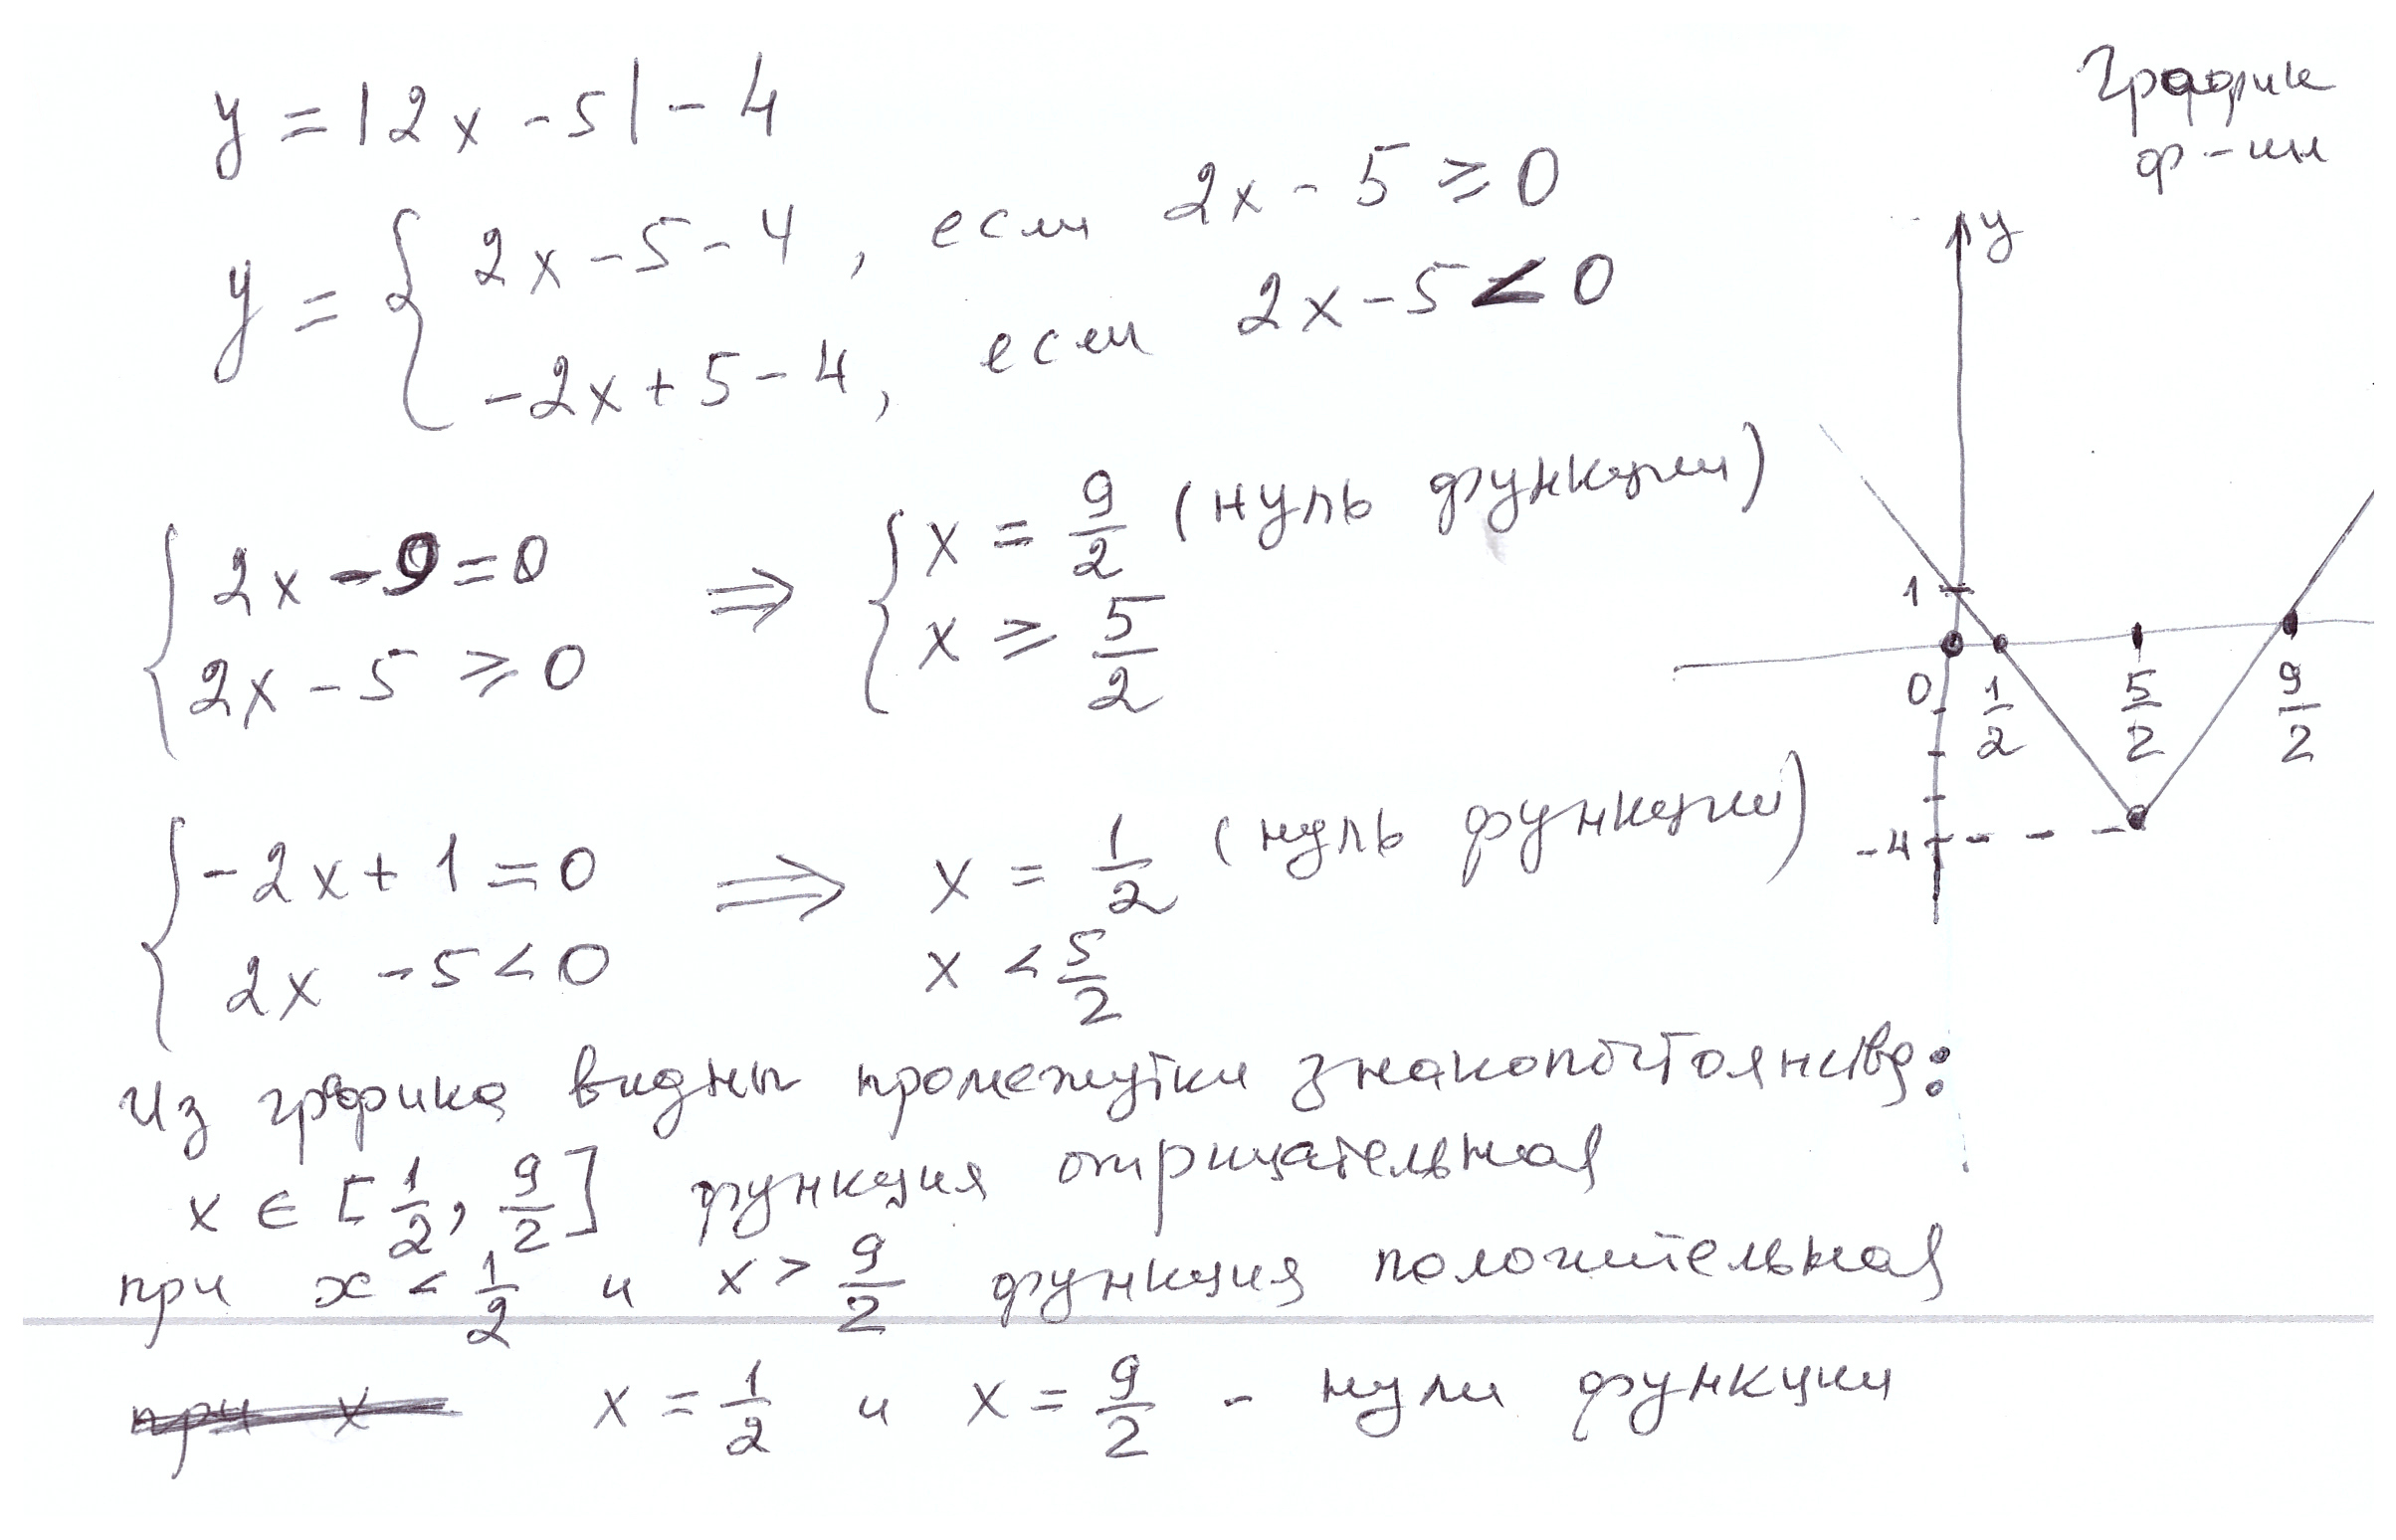 y = |2x - 5| - 4
График
ф-ии
y = { 2x - 5 - 4, если 2x - 5 ≥ 0
-2x + 5 - 4, если 2x - 5 < 0
{ 2x - 9 = 0 ⇒ { x = 9/2 (нуль функции)
2x - 5 ≥ 0 x ≥ 5/2
{ -2x + 1 = 0 ⇒ x = 1/2 (нуль функции)
2x - 5 < 0 x < 5/2
y
1
0 1/2 5/2 9/2
-4
Из графика видны промежутки знакопостоянства:
x ∈ [1/2, 9/2] функция отрицательная
при x < 1/2 и x > 9/2 функция положительная
при x x = 1/2 и x = 9/2 - нули функции